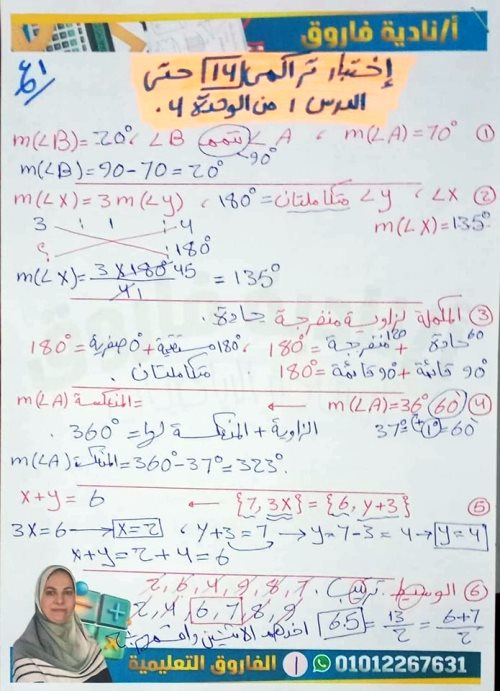 أ/نادية فاروق
إختبار تراكمى (14) حتى
الدرس 1 من الوحدة 4.
① m(∠A)=70° ، ∠A تتمم ∠B ، m(∠B)=20°
90°
m(∠B)=90-70=20°
② ∠X ، ∠y متكاملتان =180° ، m(∠X)=3m(∠y)
m(∠X)=135°
3 : 1 : 4
؟ 180°
m(∠X)= 3×180° 45 / 4 1 = 135°
③ المكملة لزاوية منفرجة حادة.
60 حادة + 120 منفرجة = 180° ، 180° مستقيمة + 0° صفرية = 180°
90° قائمة + 90° قائمة = 180° متكاملتان.
④ m(∠A)=36° 60' ← m(∠A) المنعكسة =
37° (+1°) = 60' الزاوية + المنعكسة لها = 360°.
m(∠A) المنعكسة = 360°-37°=323°.
⑤ {7,3X}={6,y+3} ← x+y= 6
3X=6 → X=2 ، y+3=7 → y=7-3=4 → y=4
x+y=2+4=6
⑥ الوسيط. ترتيب. 2,6,4,9,8,7
2,4,6,7,8,9
6+7/2 = 13/2 = 6.5
أ/ الفاروق التعليمية 01012267631